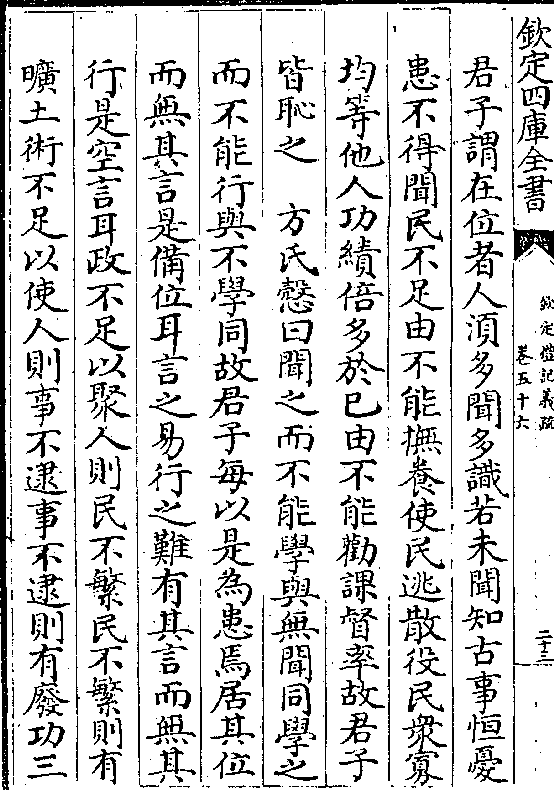 欽定四庫全書
欽定禮記義疏
卷五十六
二十三
君子謂在位者人湏多聞多識若未聞知古事恒憂
患不得聞民不足由不能撫養使民逃散役民衆寡
均等他人功績倍多於已由不能勸課督率故君子
皆恥之　方氏慤曰聞之而不能學與無聞同學之
而不能行與不學同故君子每以是為患焉居其位
而無其言是備位耳言之易行之難有其言而無其
行是空言耳政不足以聚人則民不繁民不繁則有
曠土術不足以使人則事不逮事不逮則有廢功三